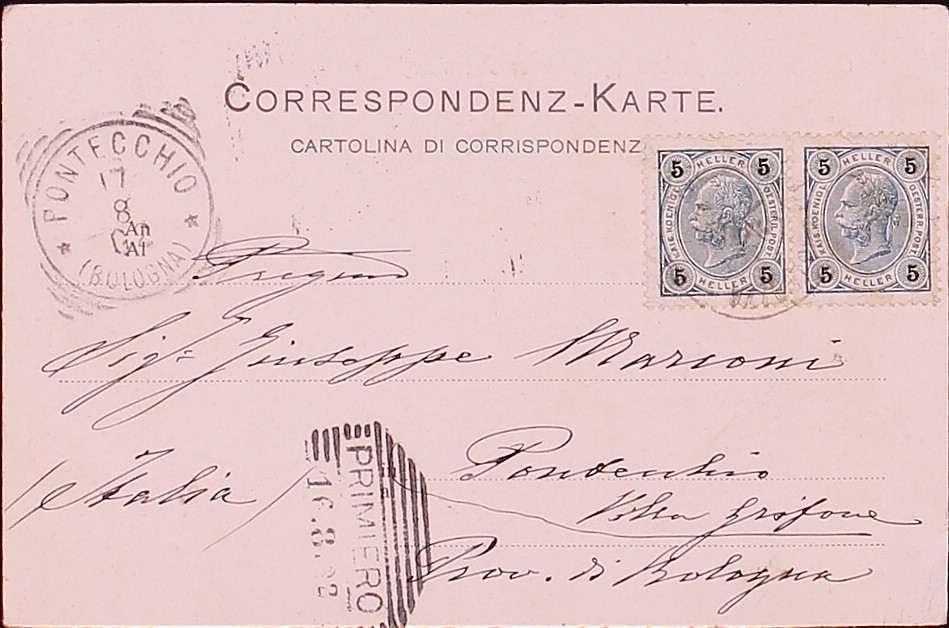 CORRESPONDENZ-KARTE.
CARTOLINA DI CORRISPONDENZ
5 HELLER 5
KAIS. KOENIGL. OESTERR. POST
5 HELLER 5
5 HELLER 5
KAIS. KOENIGL. OESTERR. POST
5 HELLER 5
PONTECCHIO
17
8
(BOLOGNA)
Sig: Giuseppe Marconi
(Italia)
Pontecchio
Villa Grifone
Prov. di Bologna
PRIMIERO
16.8.